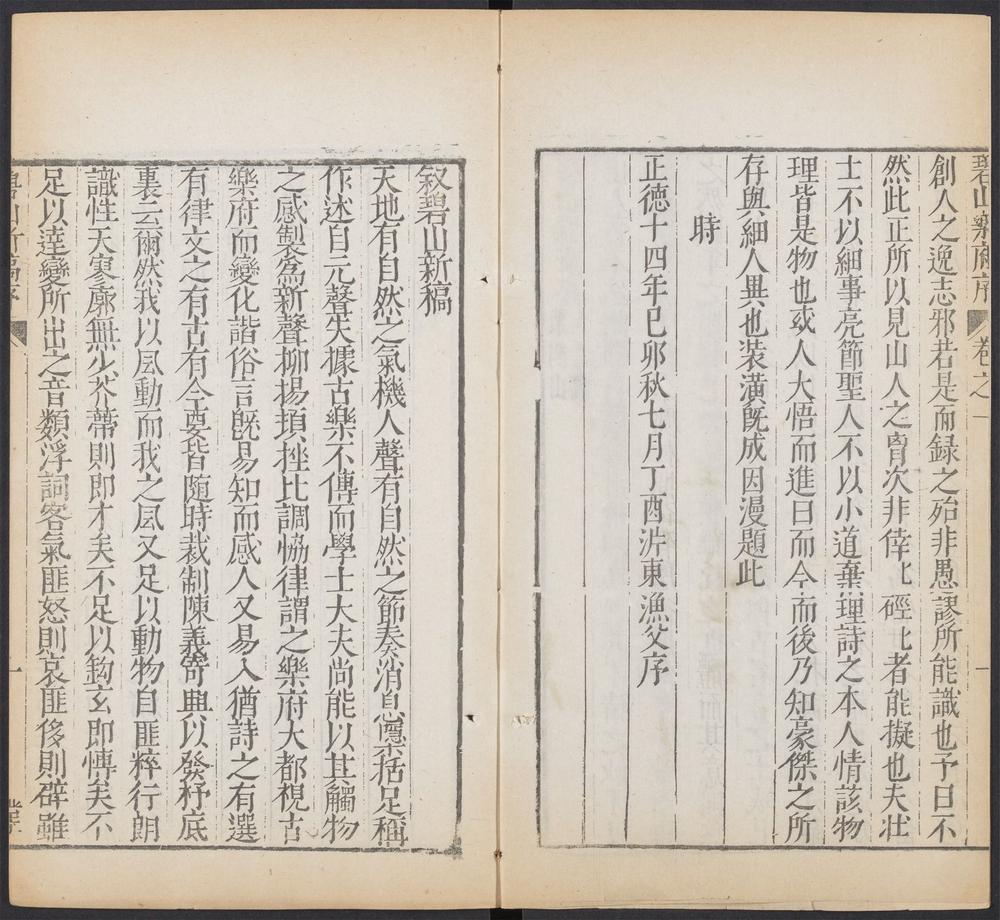 碧山樂府序 卷之一
創人之逸志邪若是而録之殆非愚謬所能識也予曰不
然此正所以見山人之胷次非倖比硜比者能擬也夫壮
士不以細事亮節聖人不以小道棄理詩之本人情該物
理皆是物也或人大悟而進曰而今而後乃知豪傑之所
存與細人異也装潢旣成因漫題此
時
正德十四年己卯秋七月丁酉沜東漁父序
一
叙碧山新稿
天地有自然之氣機人聲有自然之節奏消息檃括足稱
作述自元聲失據古樂不傳而學士大夫尚能以其觸物
之感製爲新聲抑揚頊挫比調恊律謂之樂府大都視古
樂府而變化諧俗言旣易知而感人又易入猶詩之有選
有律文之有古有今要皆隨時裁制陳義寄興以發抒底
裏云爾然我以風動而我之風又足以動物自匪粹行朗
識性天寥廓無少芥蔕則即才矣不足以鈎玄即慱矣不
足以逹變所出之音纇浮詞客氣匪怒則哀匪侈則辟雖
碧山新稿序
一